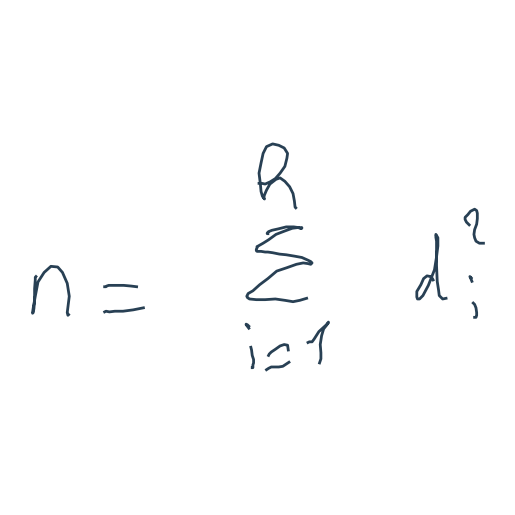 n = \sum_{i=1}^{h} d_i^2